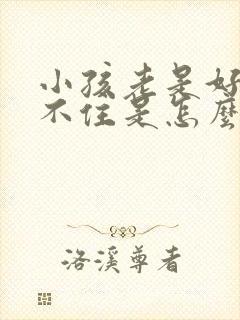 小孩老是好
不住是怎麼
洛溪尊者